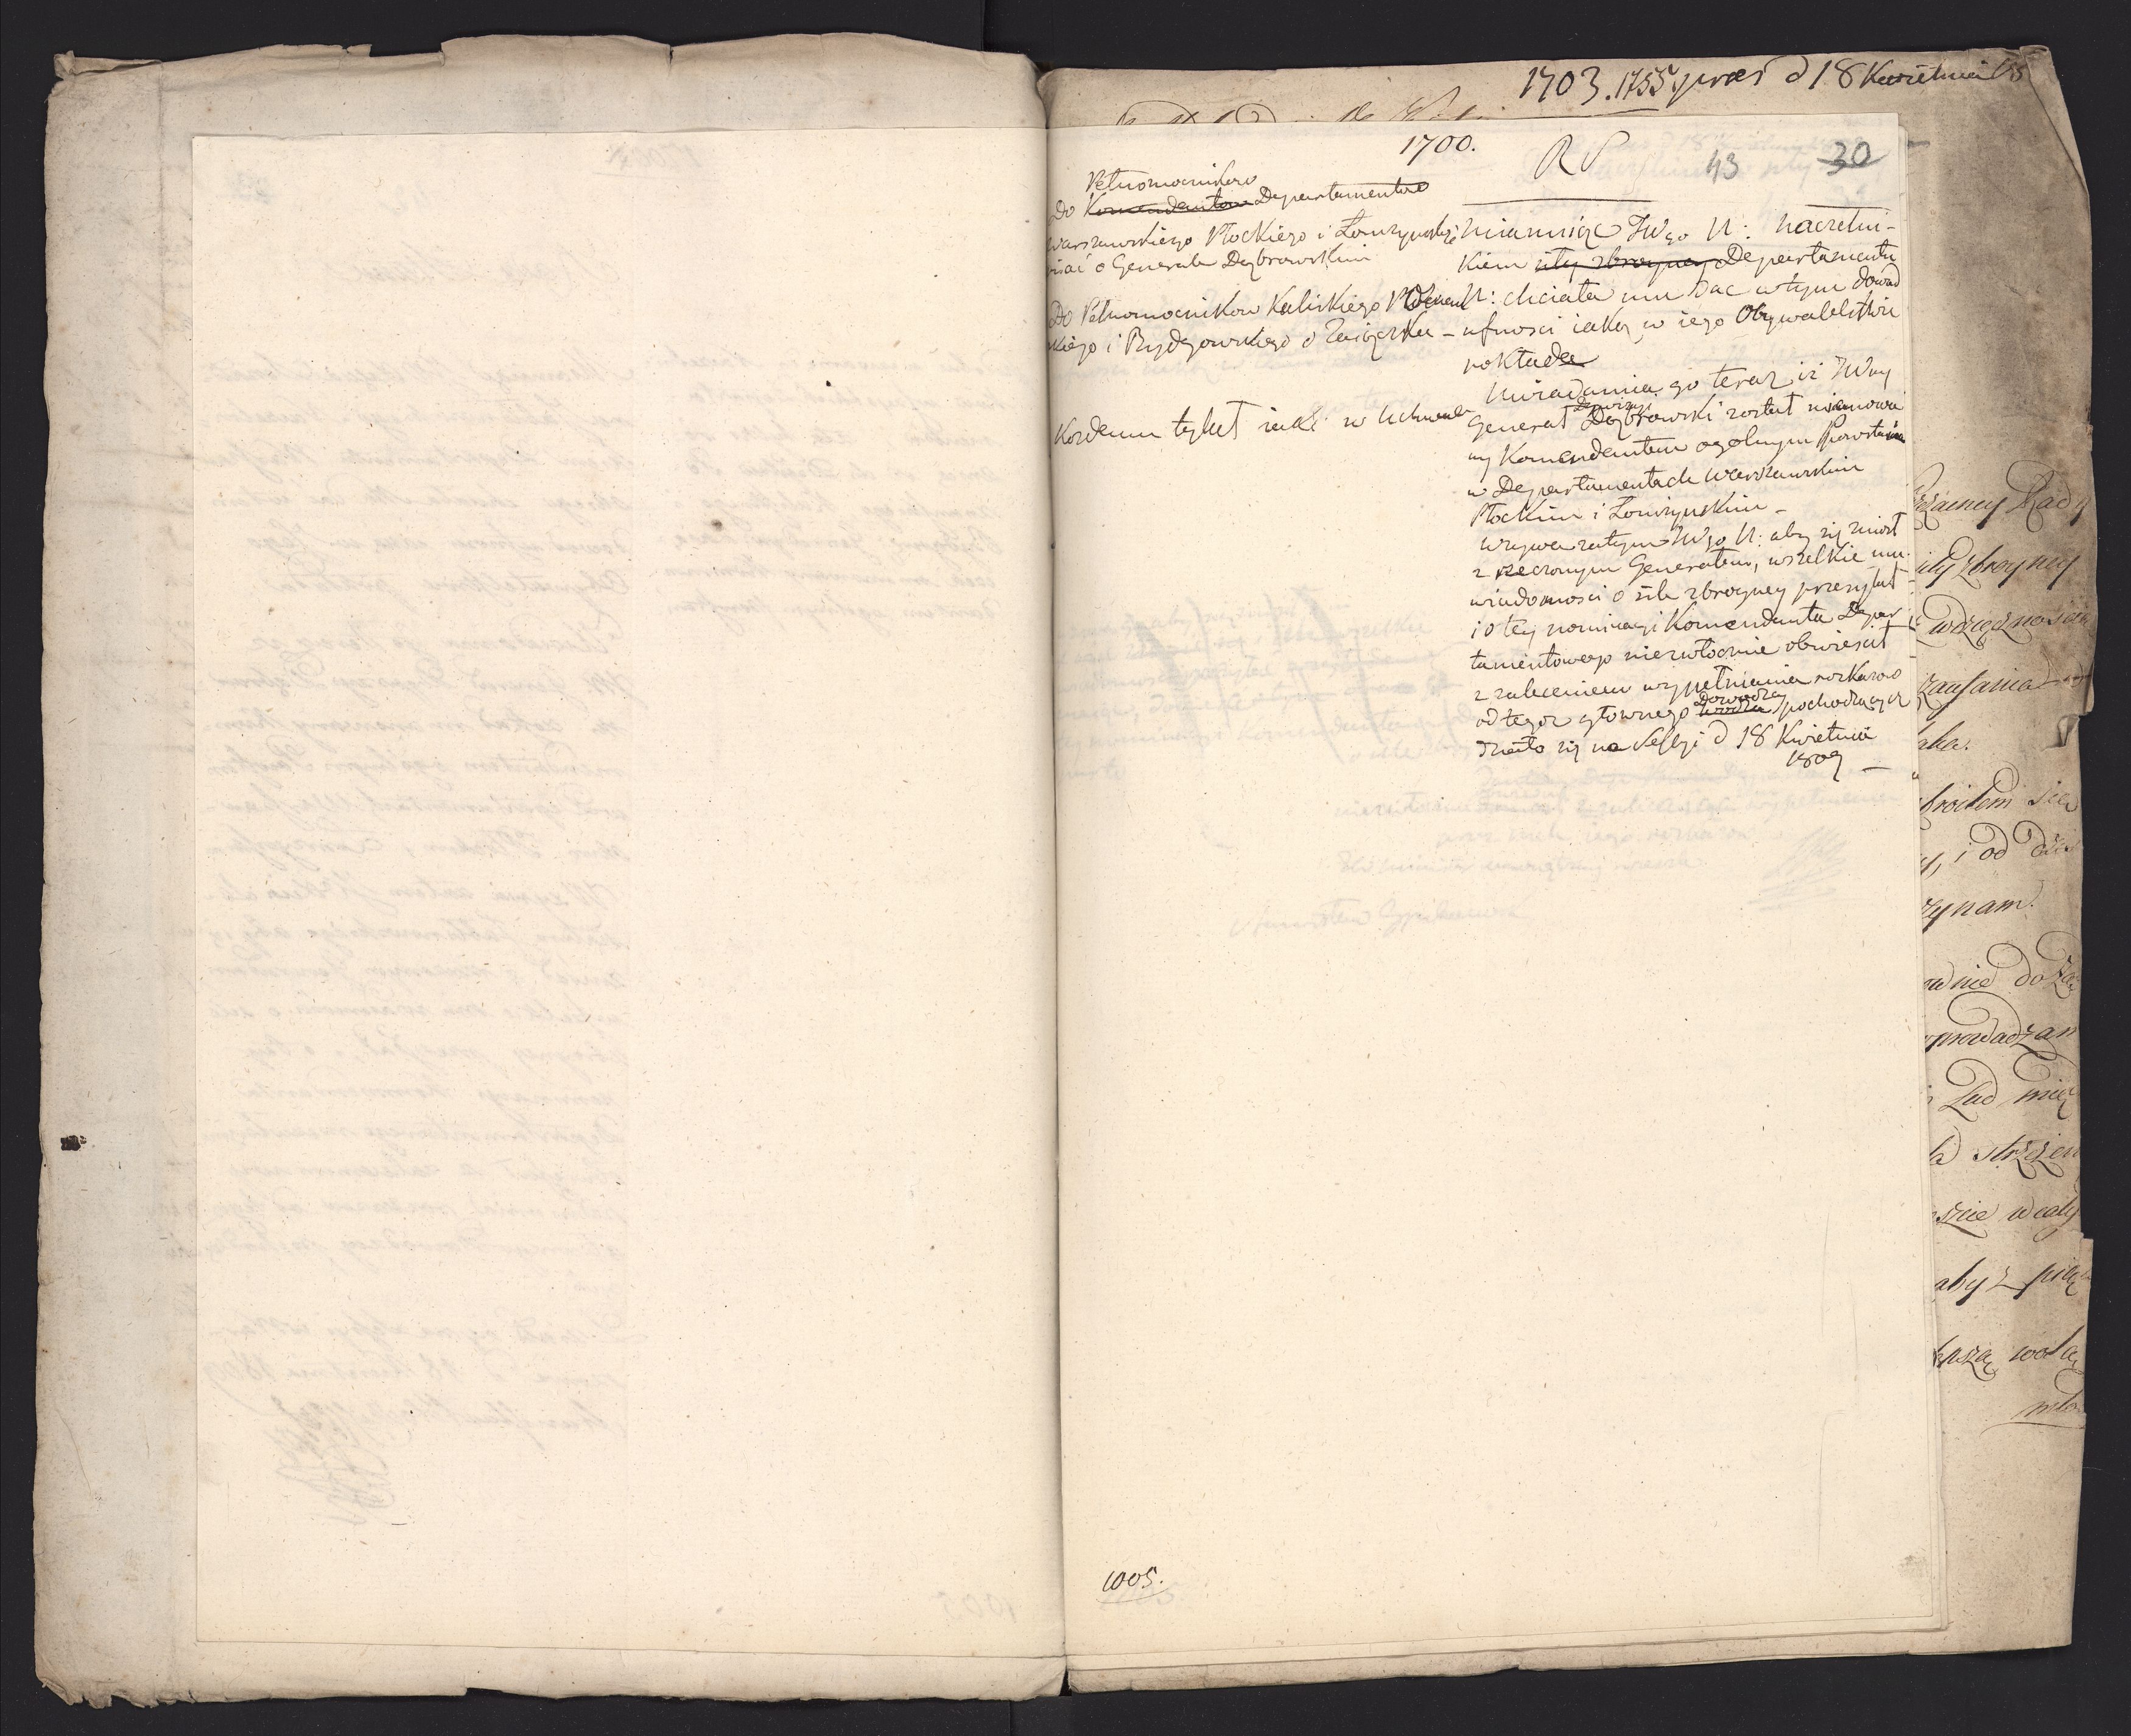 1703. 1755 praes d 18 Kwietnia
1700.
R S
43 30
Pełnomocnikow
Do Komendantow Departamentow
Warszawskiego Płockiego i Łomżynskie
pisać o Generale Dąbrowskim
Do Pełnomocnikow Kaliskiego Poznan
skiego i Bydgowskiego o Zaiączku –
Kożdemu tytuł iaki w Uchwale
Mianuiąc JWgo N: Naczelni-
kiem siły zbroyney Departamentu
N: chciała mu dać w tym dowod
ufnosci iaką w iego Obywatelstwie
pokłada
Uwiadamia go teraz iż JWny
Generał Dywizyi Dąbrowski został mianowa
ny Komendantem ogolnym Powstania
w Departamentach Warszawskim
Płockim i Łomżynskim –
Wzywa zatym JWgo N: aby się zniosł
z rzeczonym Generałem, wszelkie mu
wiadomosci o sile zbroyney przesyłał
i o tey nominacyi Komendanta Depar
tamentowego niezwłocznie obwiescił
z zaleceniem wypełniania rozkazow
od tegoż głownego Dowodzcy wodza pochodzących
Działo się na Sessyi d 18 Kwietnia
1809 –
1005.
Rady
siły zbroyney
wdzięcznoscią
zaufania
i od
nam.
do
Lud
aby z
wolą